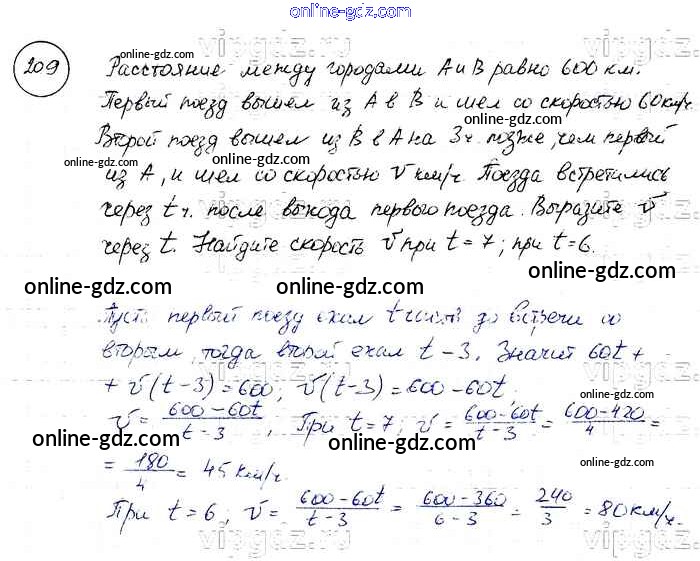 online-gdz.com
209
online-gdz.com
Расстояние между городами А и В равно 600 км.
Первый поезд вышел из А в В и шел со скоростью 60 км/ч.
online-gdz.com
Второй поезд вышел из В в А на 3 ч. позже, чем первый
online-gdz.com
из А, и шел со скоростью v км/ч. Поезда встретились
через t ч. после выхода первого поезда. Выразите v
через t. Найдите скорость v при t = 7; при t = 6.
online-gdz.com online-gdz.com online-gdz.com
Пусть первый поезд ехал t часов до встречи со
вторым, тогда второй ехал t - 3. Значит 60t +
+ v(t - 3) = 600; v(t - 3) = 600 - 60t
online-gdz.com online-gdz.com
v = (600 - 60t)/(t - 3), При t = 7; v = (600 - 60t)/(t - 3) = (600 - 420)/4 =
online-gdz.com online-gdz.com
= 180/4 = 45 км/ч.
online-gdz.com
При t = 6; v = (600 - 60t)/(t - 3) = (600 - 360)/(6 - 3) = 240/3 = 80 км/ч.
online-gdz.com
online-gdz.com